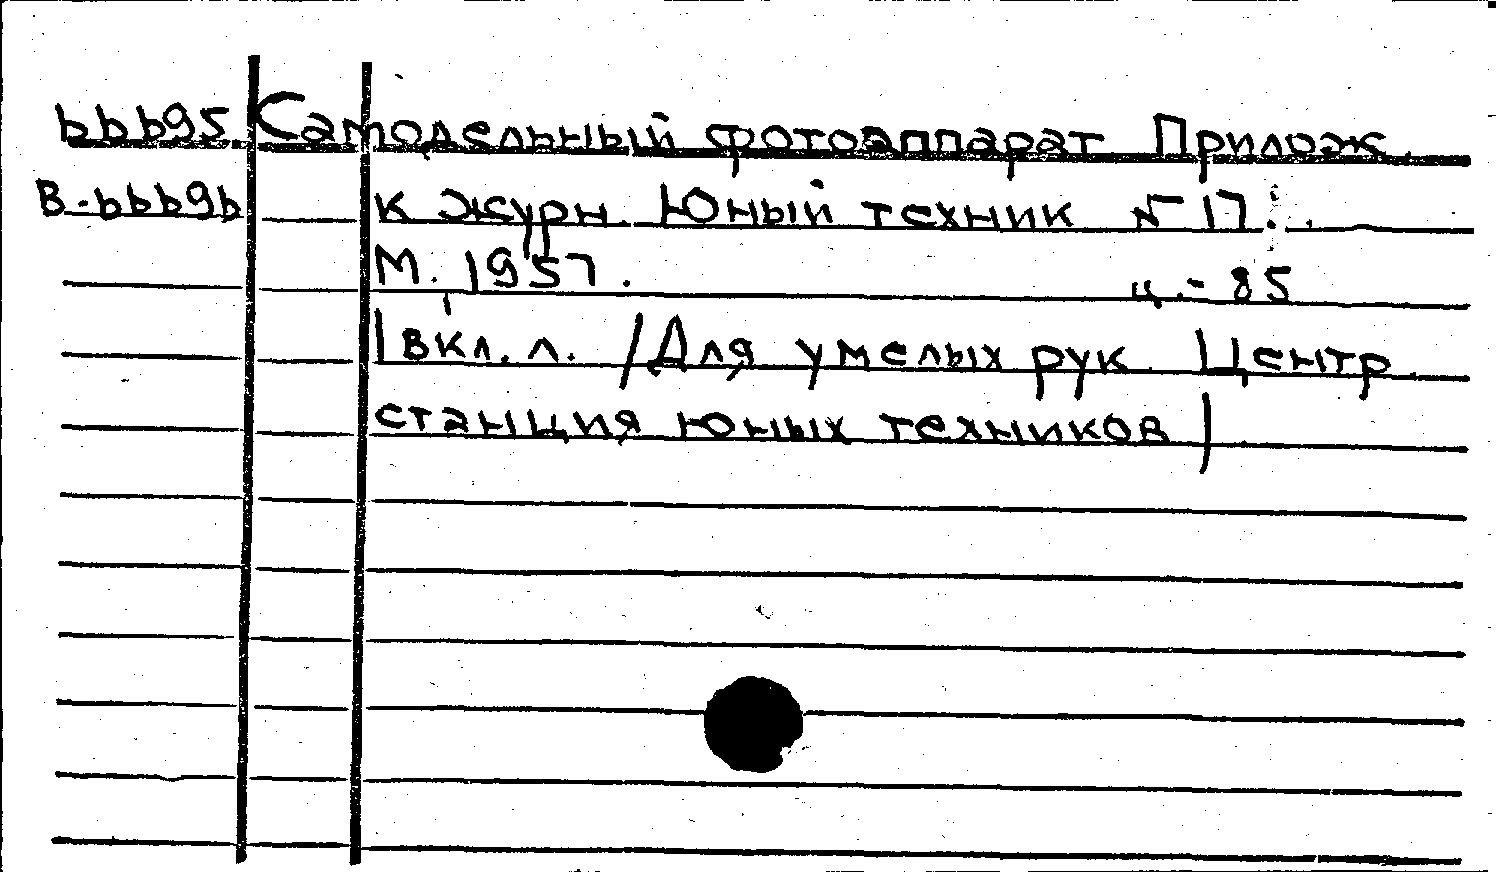 66695 Самодельный фотоаппарат Прилож.
В-66696 к журн. Юный техник № 17.
М. 1957. ц.-85
1 вкл. л. /Для умелых рук. Центр.
станция юных техников/